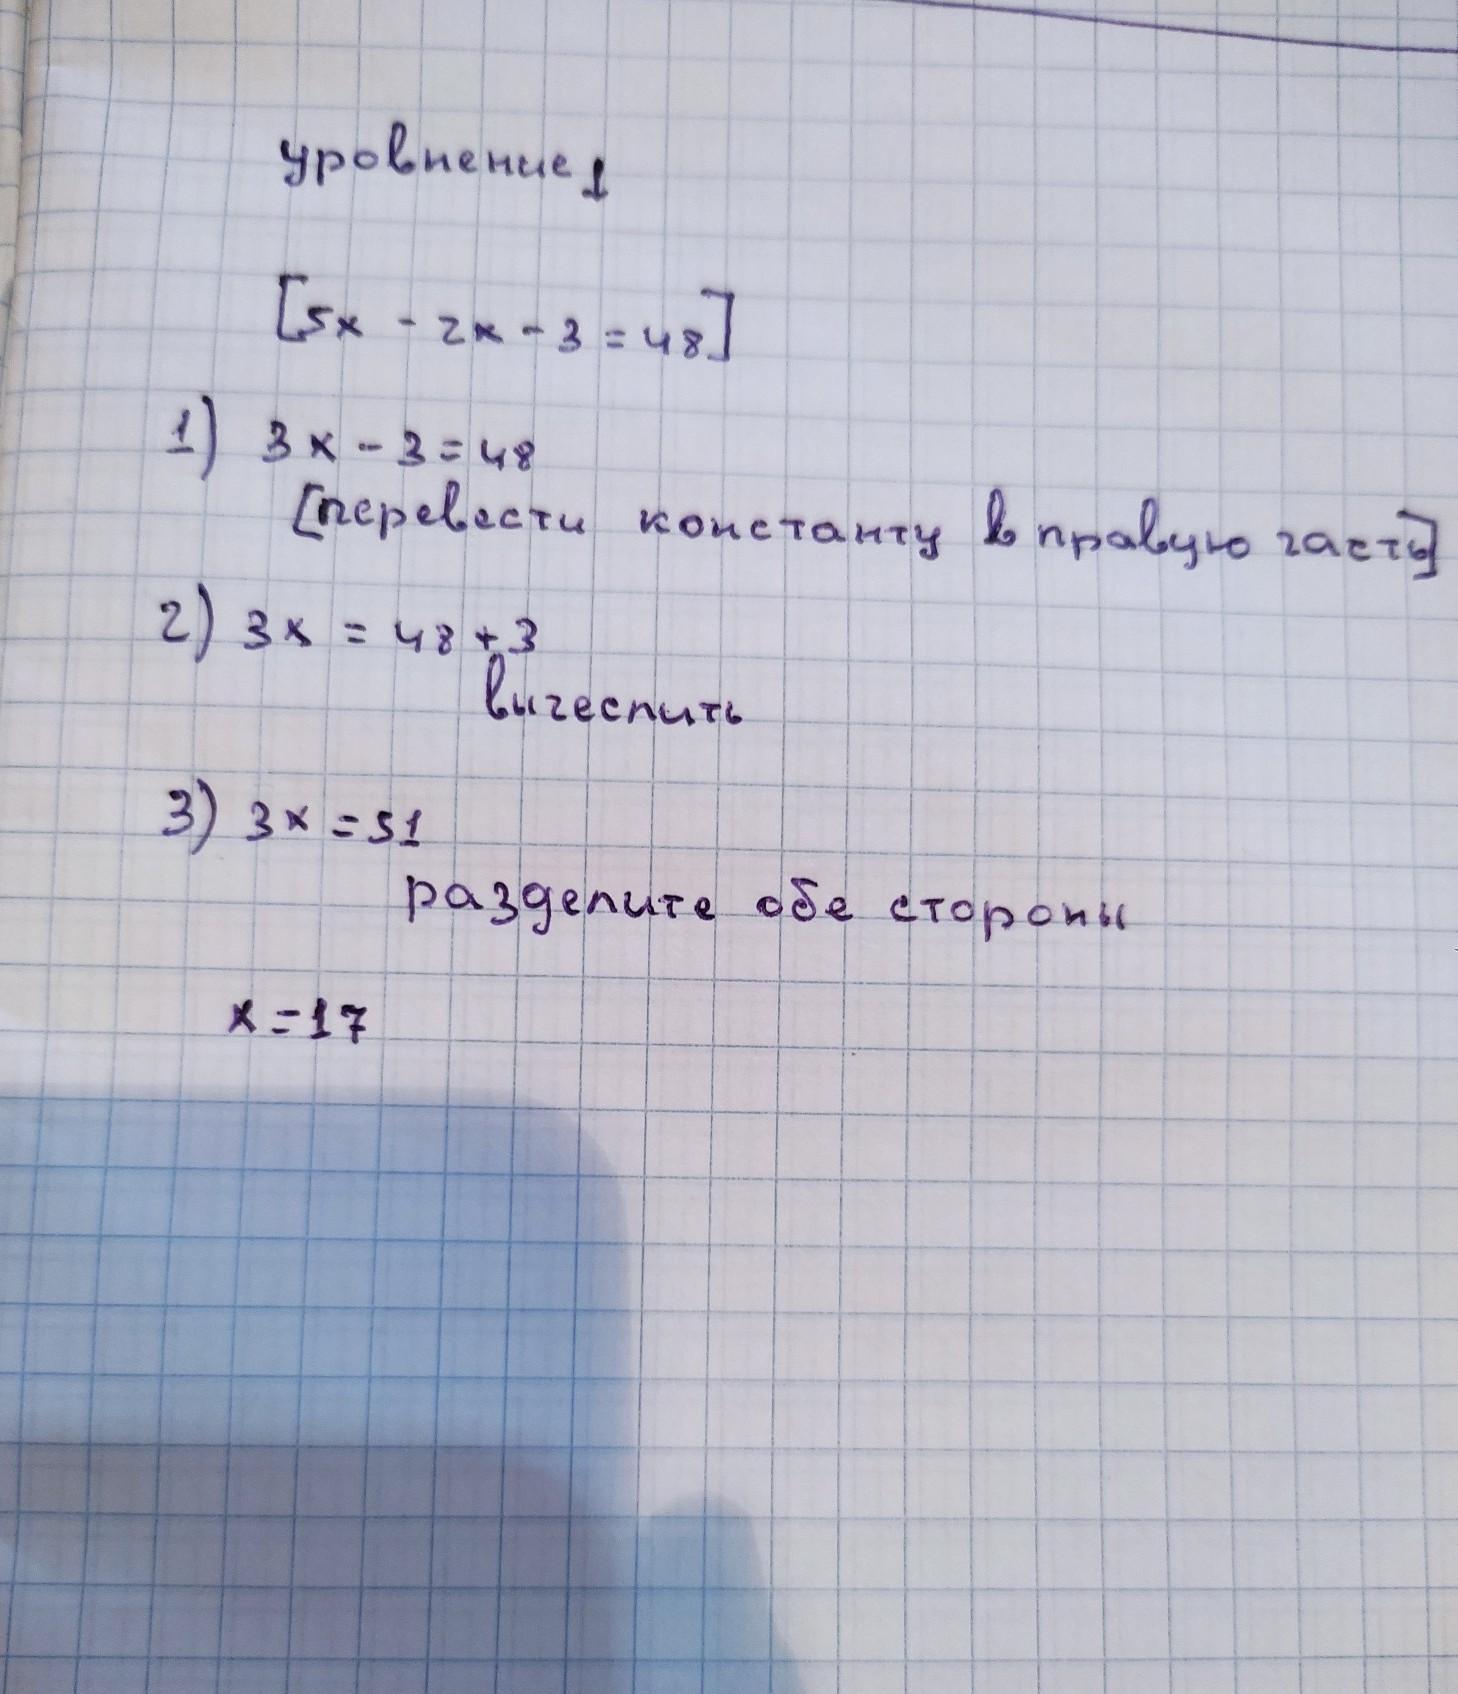 уровнение 1
[5x - 2x - 3 = 48]
1) 3x - 3 = 48
[перевести константу в правую часть]
2) 3x = 48 + 3
вычеслить
3) 3x = 51
разделите обе стороны
x = 17